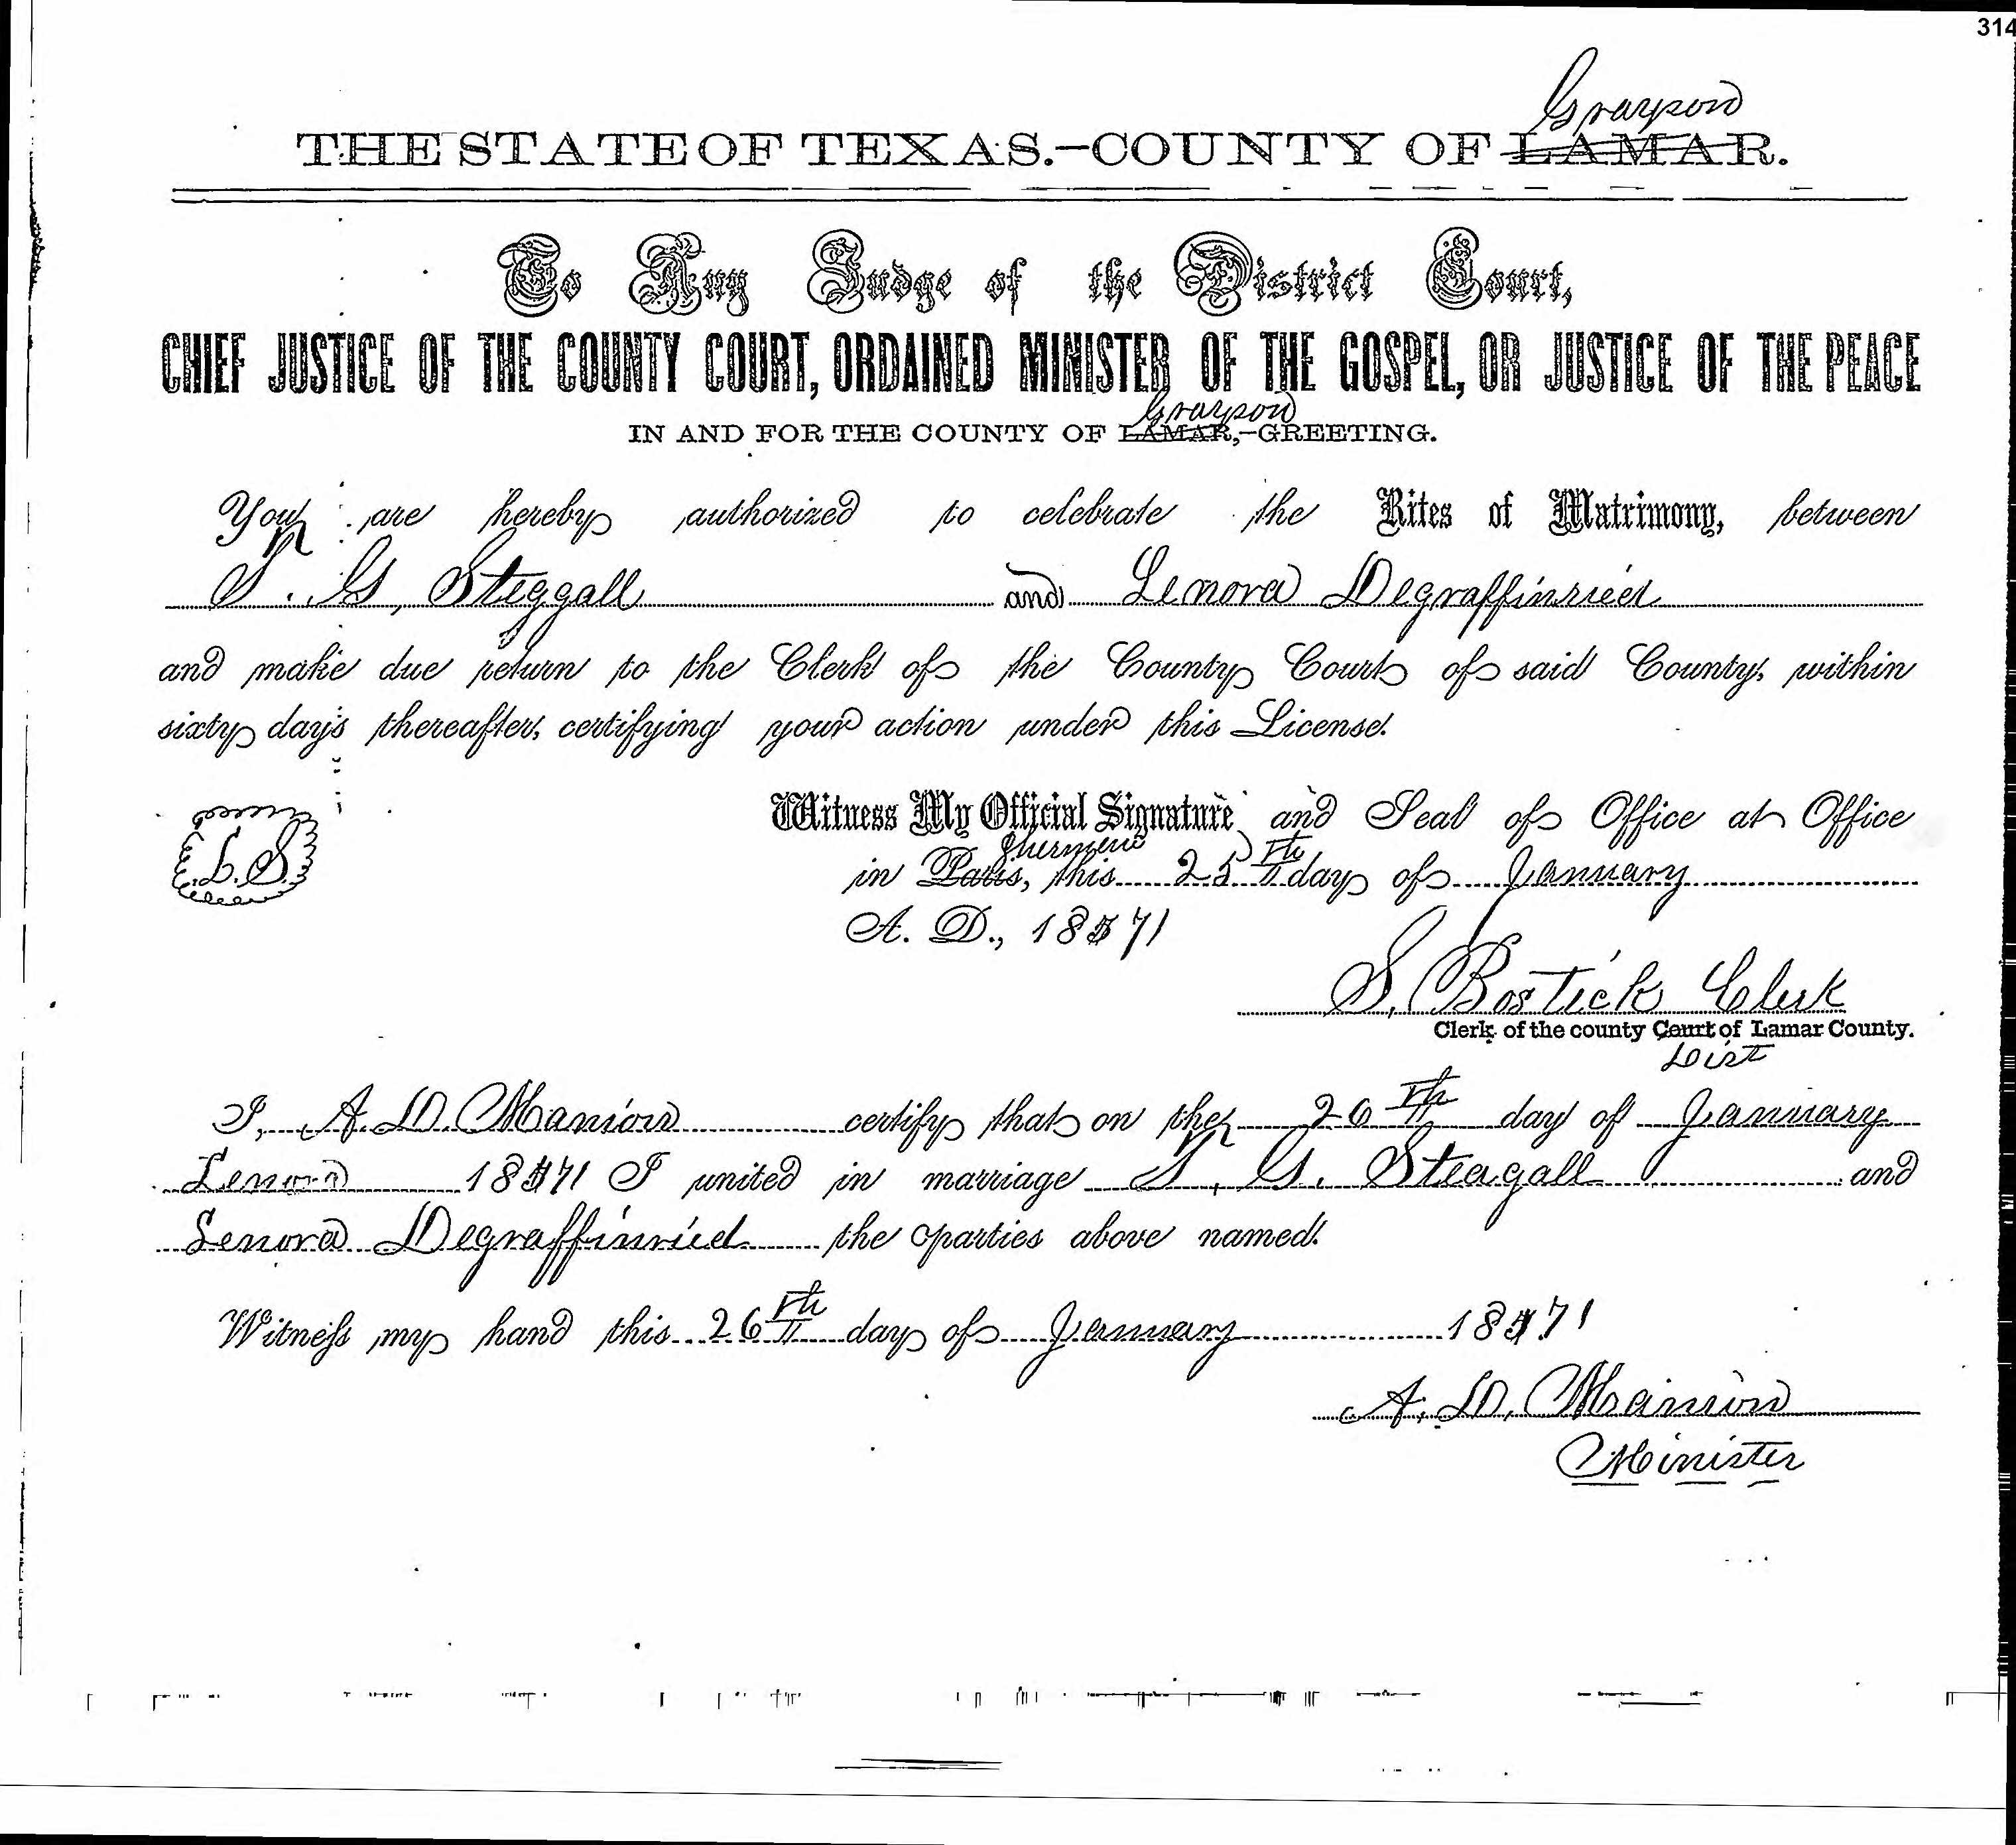 314
Grayson
THE STATE OF TEXAS.—COUNTY OF LAMAR.
To Any Judge of the District Court,
CHIEF JUSTICE OF THE COUNTY COURT, ORDAINED MINISTER OF THE GOSPEL, OR JUSTICE OF THE PEACE
Grayson
IN AND FOR THE COUNTY OF LAMAR,—GREETING.
You are hereby authorized to celebrate the Rites of Matrimony, between
G. Steggall and Lenora Degraffinried
and make due return to the Clerk of the County Court of said County, within
sixty days thereafter, certifying your action under this License.
Witness My Official Signature and Seal of Office at Office
L. S.
Sherman
in Paris, this 25th day of January
A. D., 1871
S. Bostick Clerk
Clerk of the county Court of Lamar County.
Dist
I, A. D. Manion certify that on the 26th day of January
Lenora 1871 I united in marriage G. Steagall and
Lenora Degraffinried the parties above named.
Witness my hand this 26th day of January 1871
A. D. Manion
Minister